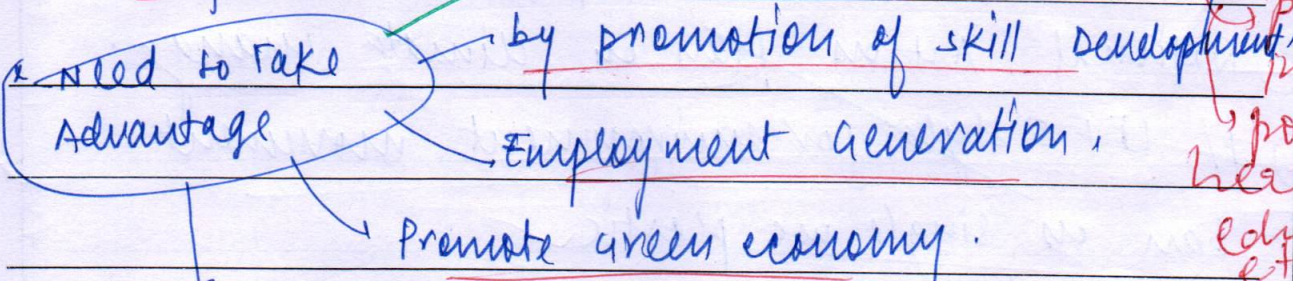 * Need to Take
Advantage
by promotion of skill Development,
Employment Generation.
Promote Green economy.